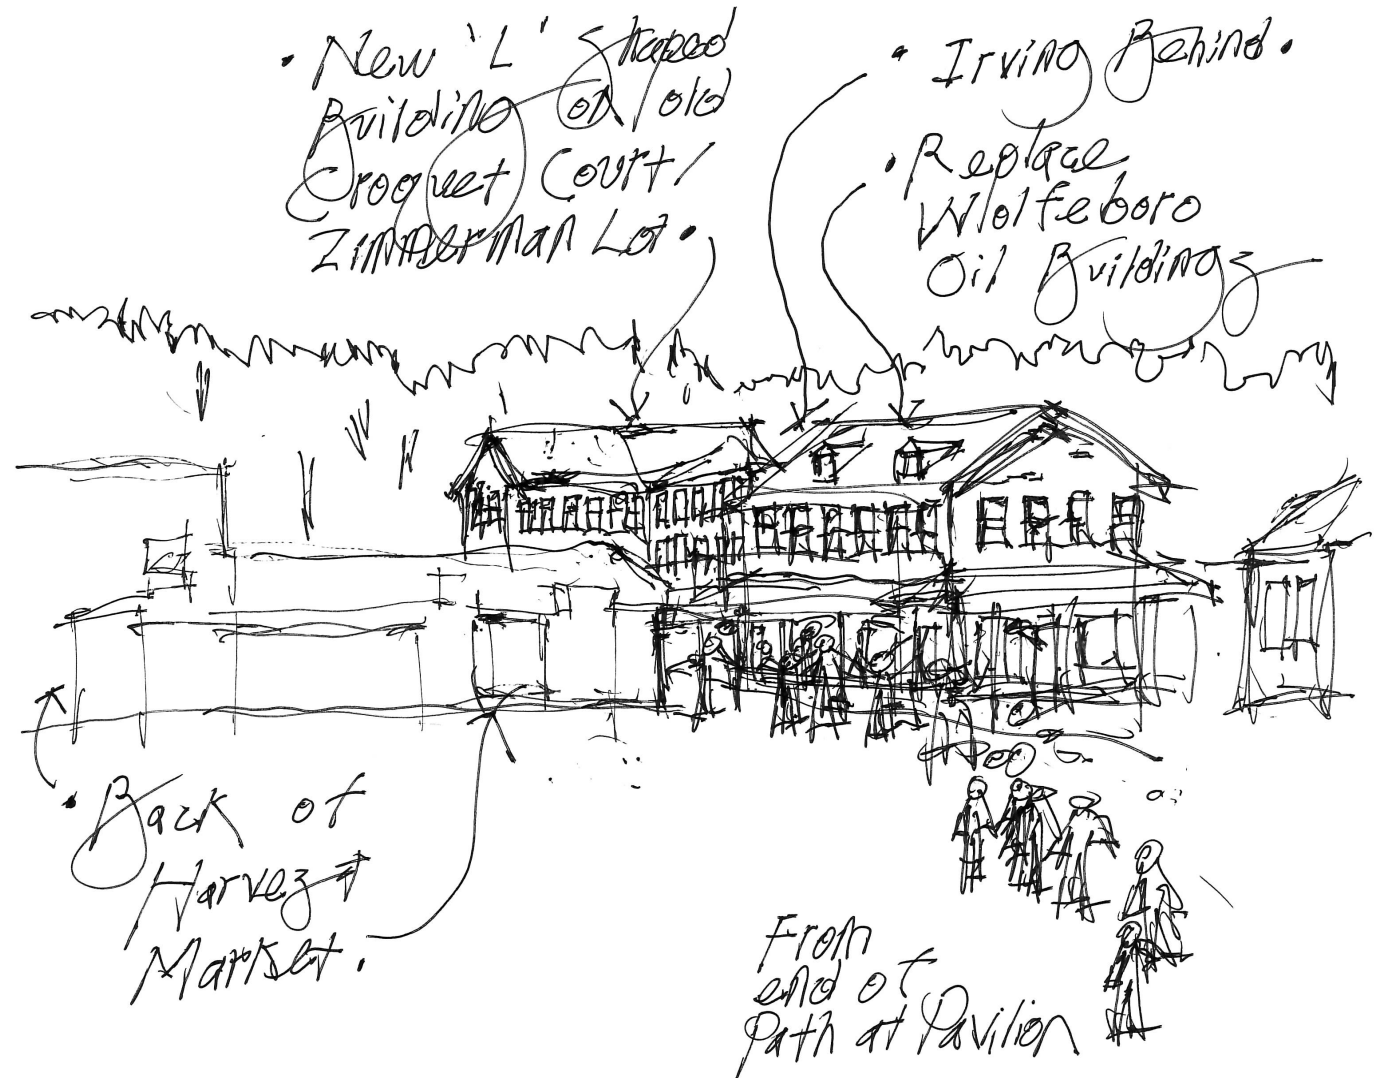 • New 'L' Shaped
Building on old
Croquet Court/
Zimmerman Lot •
• Irving Behind •
• Replace
Wolfeboro
Oil Buildings
• Back of
Harvest
Market •
From
end of
Path at Pavilion